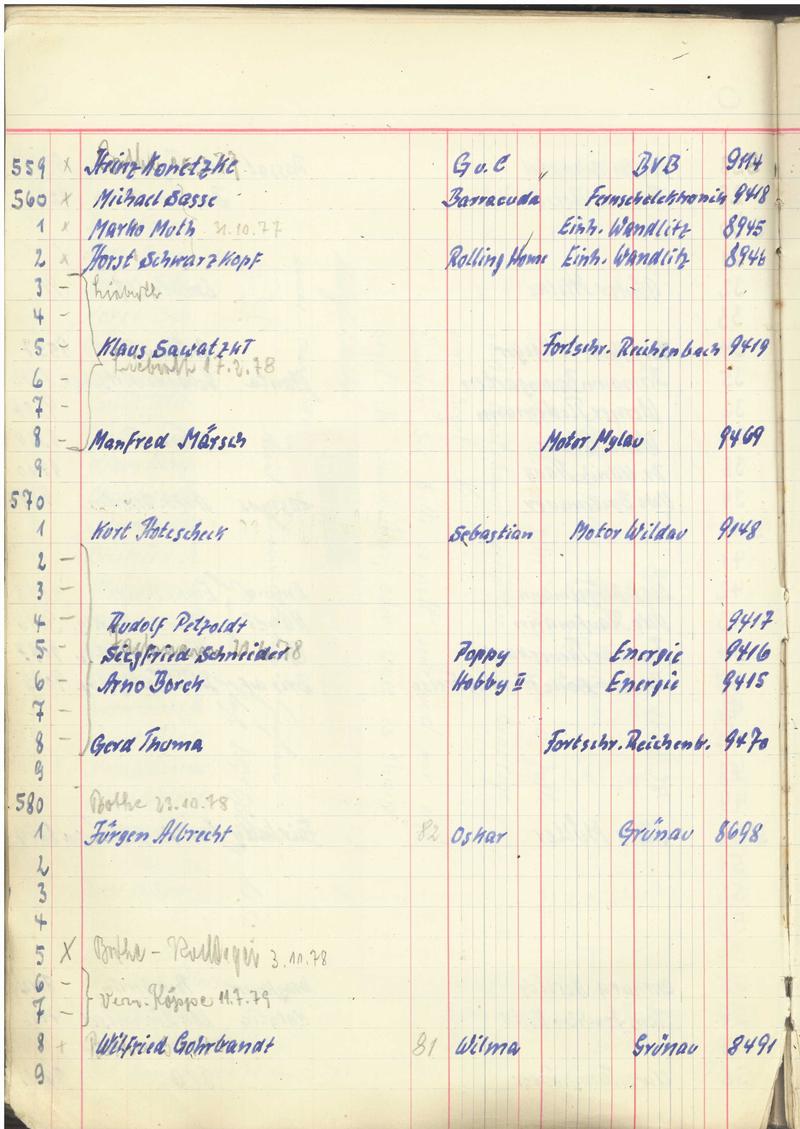 559 x Heinz Konetzke G v. C BVB 9114
560 x Michael Sasse Barracuda Fernsehelektronik 9418
1 x Marko Muth 31.10.77 Einh. Wandlitz 8945
2 x Horst Schwarzkopf Rolling Home Einh. Wandlitz 8946
3 – Liebroth
4 –
5 – Klaus Sawatzki Fortschr. Reichenbach 9419
6 – Liebroth 17.2.78
7 –
8 – Manfred Märsch Motor Mylau 9469
9
570
1 Kurt Sebastian Motor Wildau 9148
2 –
3 –
4 – Rudolf Petzoldt 9417
5 – Siegfried Schneider 78 Poppy Energie 9416
6 – Arno Borck Hobby II Energie 9415
7 –
8 – Gerd Thoma Fortschr. Reichenb. 9470
9
580 Bothe 23.10.78
1 Jürgen Albrecht 82 Oskar Grünau 8698
2
3
4
5 X Bothe – 3.11.78
6 –
7 – Köppe 11.7.79
8 + Wilfried Gohrbandt 81 Wilma Grünau 8491
9